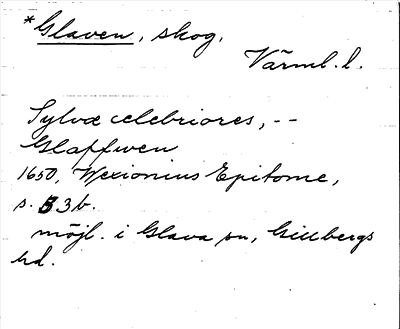 *Glaven, skog.
Värml. l.
Sylvæ celebriores, --
Glaffwen
1650, Wexionius Epitome,
s. B 3 b.
möjl. i Glava sn, Gillbergs
hd.